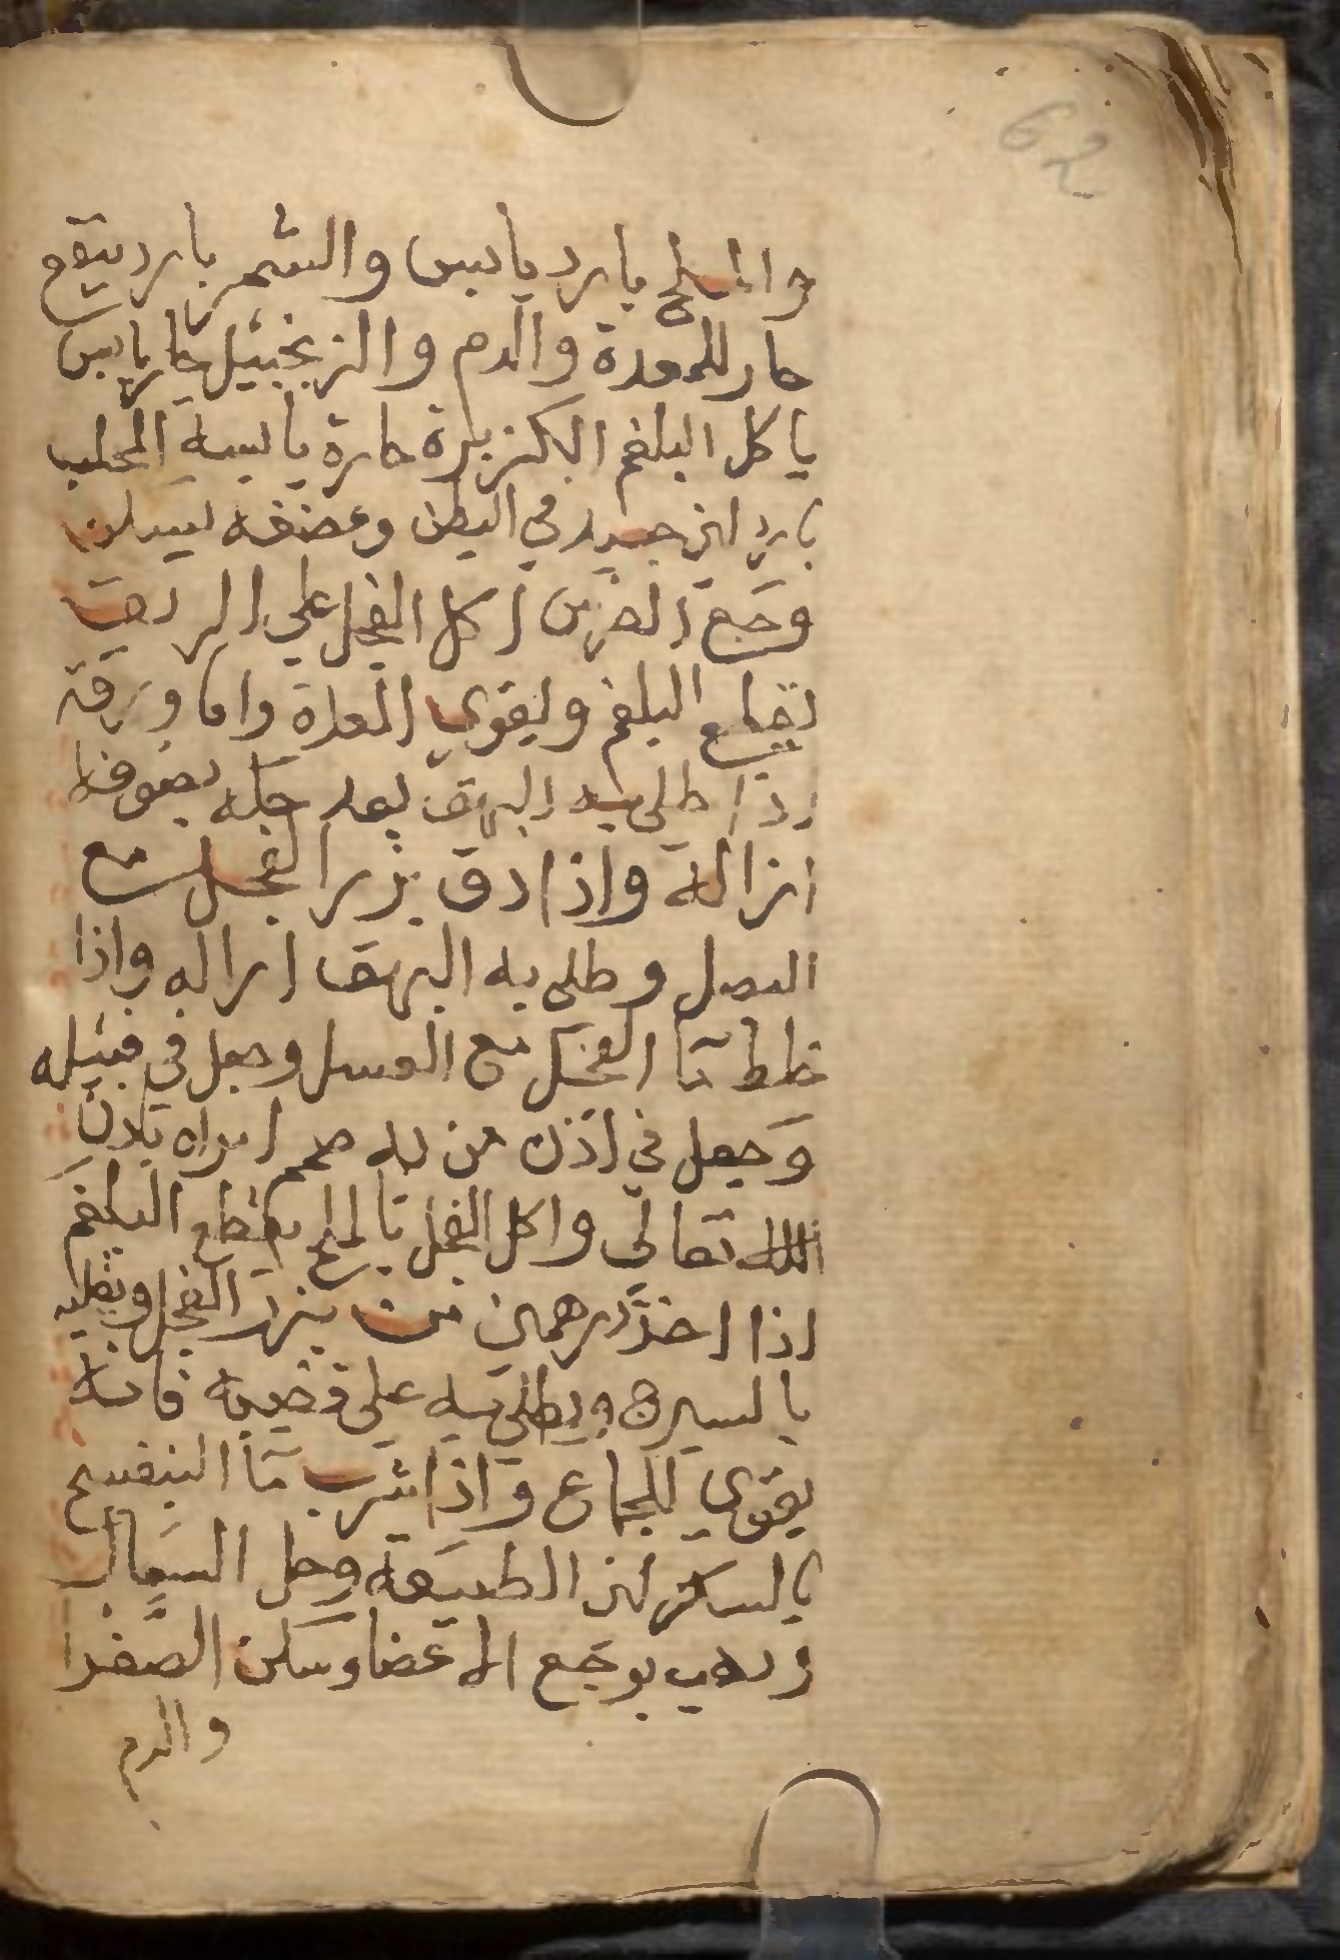 62
والملح بارد يابس والشمر بارد ينفع
حار للمعدة والدم والزنجبيل حار يابس
ياكل البلغم الكزبرة حارة يابسة المحلب
بارد لين جيد في البطن ومضغه يسكن
وجع الضرس اكل الفجل على الريق
يقطع البلغم ويقوي المعدة واما ورقه
اذا طلي به البهق بعد حكه بصوفه
ازاله واذا دق بزر الفجل مع
البصل وطلي به البهق ازاله واذا
خلط ما الفجل مع العسل وجعل في فتيله
وجعل في اذن من به صمم ابراه باذن
الله تعالى واكل الفجل بالملح يقطع البلغم
اذا اخذ درهمين من بزر الفجل ويغليه
بالسيرج ويطلي به على قضيبه فانه
يقوي للجماع واذا شرب ما البنفسج
بالسكر لين الطبيعة وحل السعال
ويذهب بوجع الاعضا وسكن الصفرا
والدم